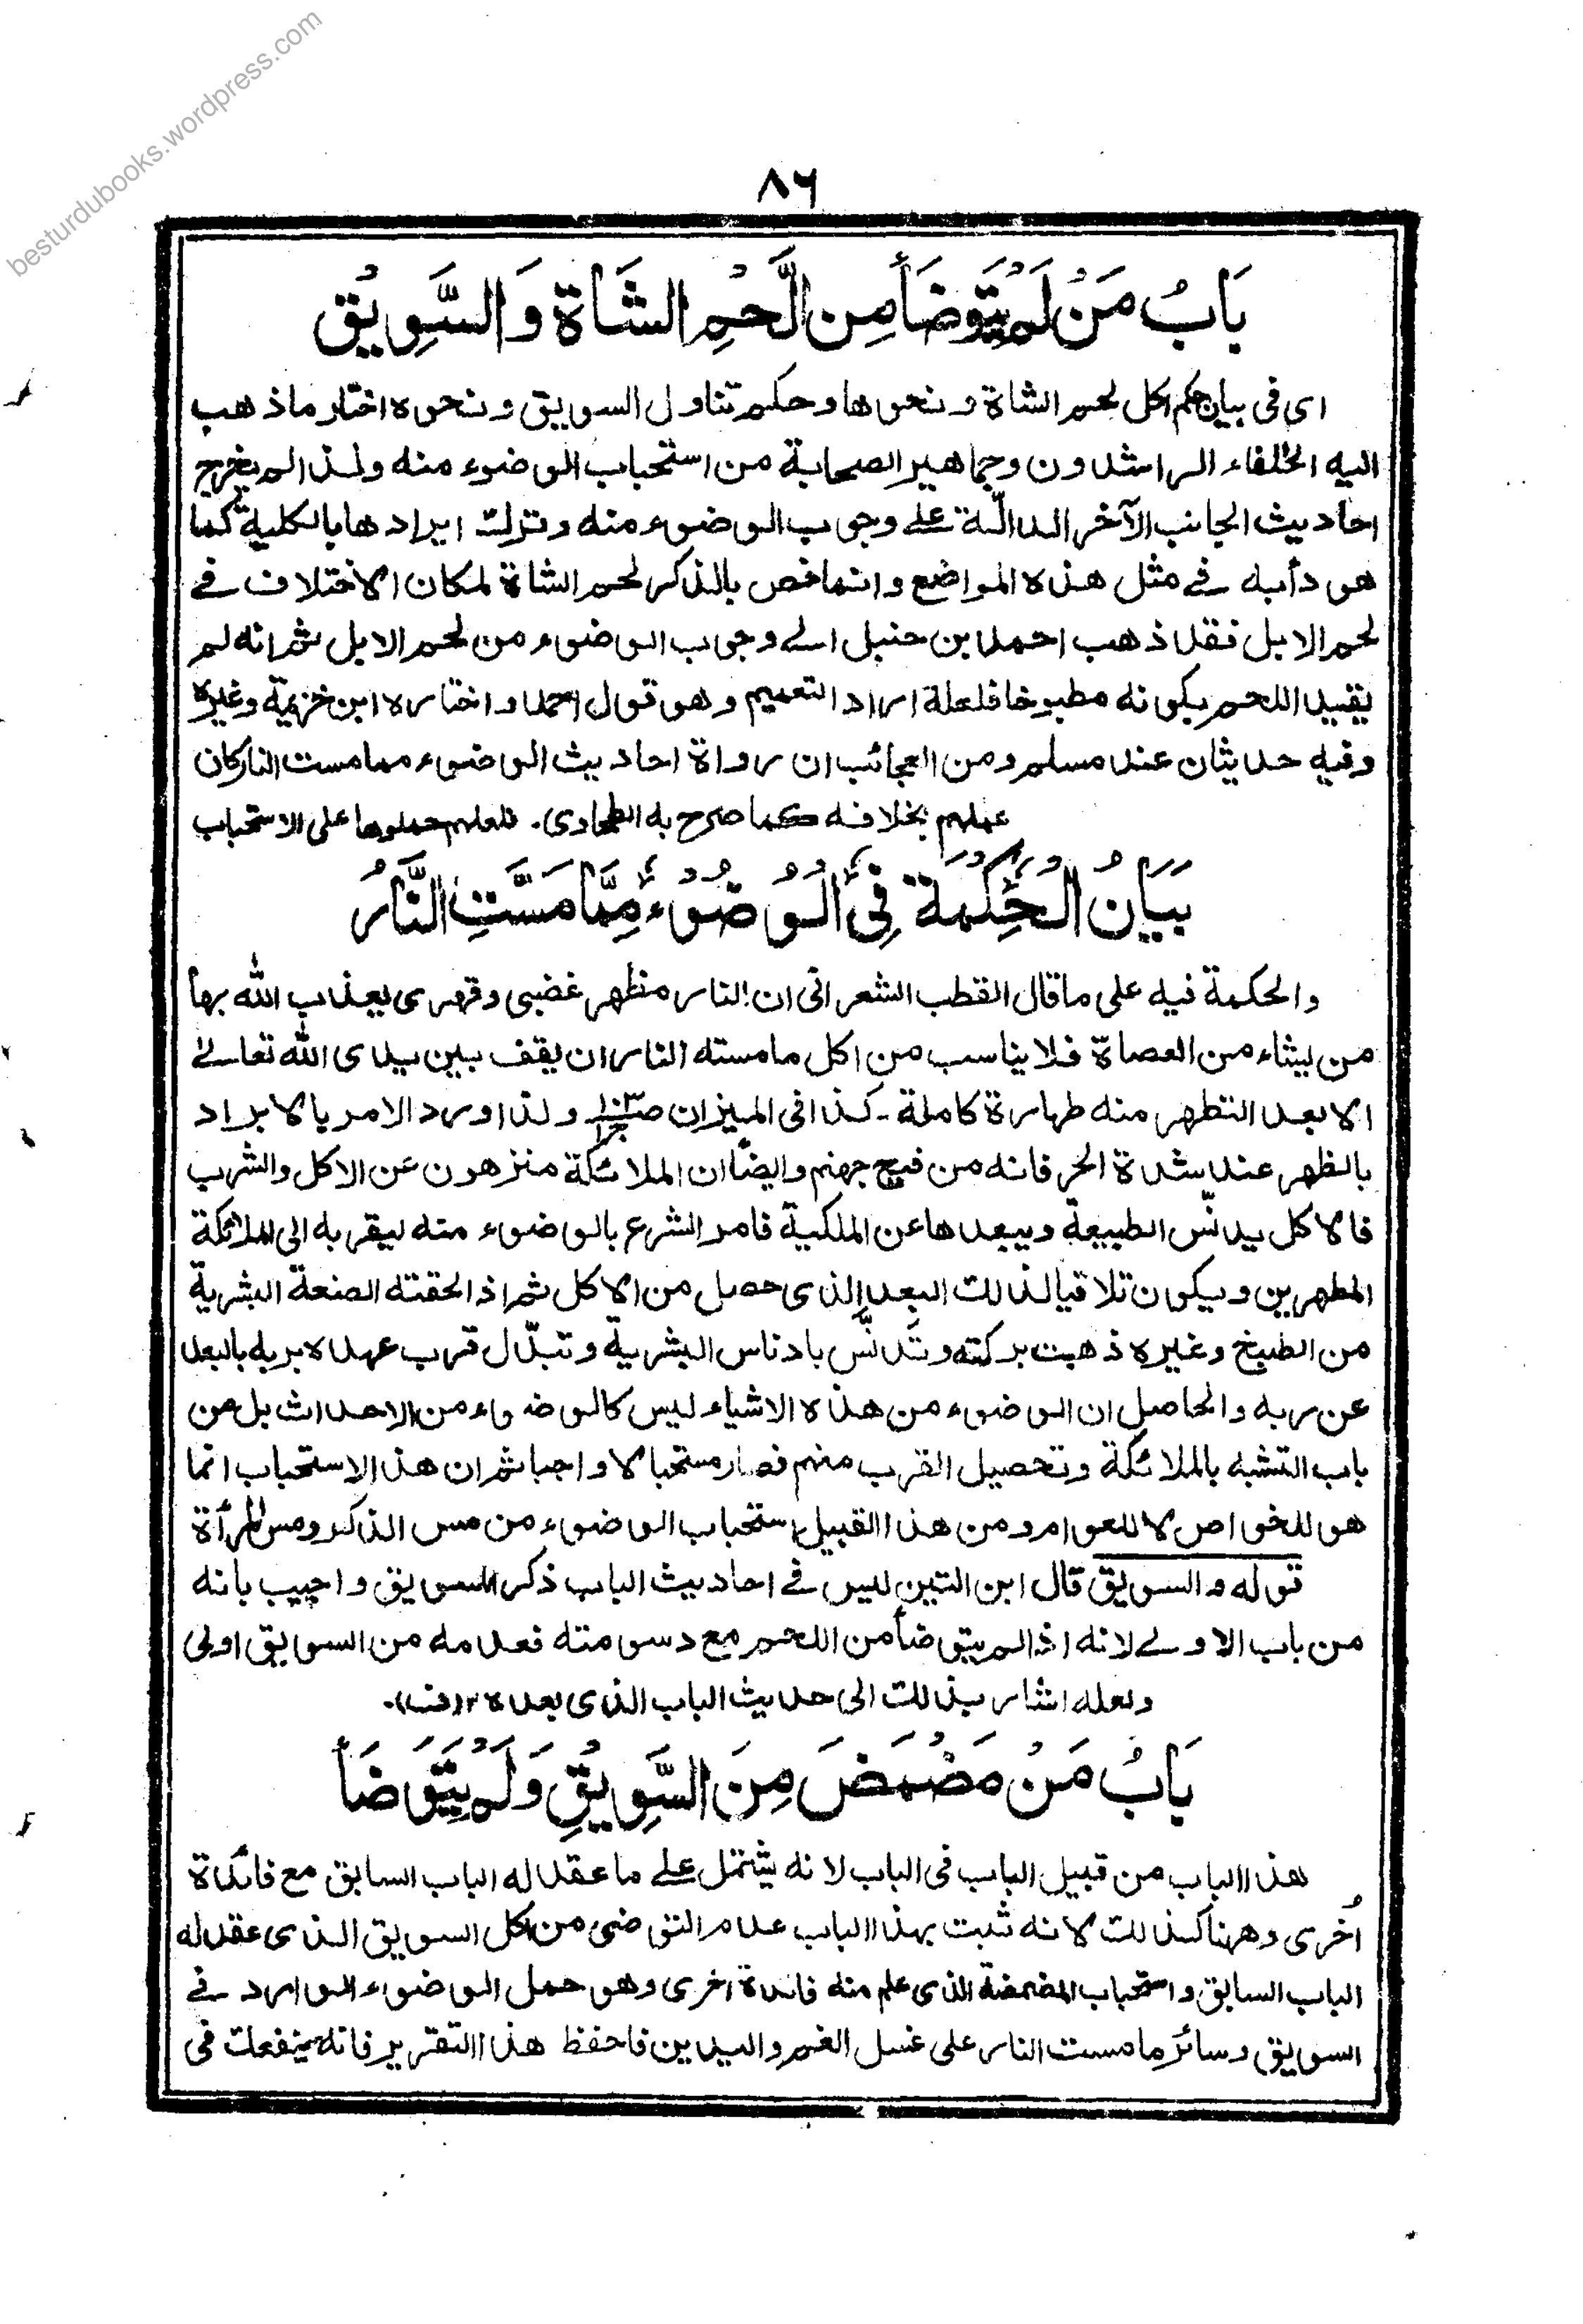 besturdubooks.wordpress.com
۸۶
بَابُ مَنْ لَمْ يَتَوَضَّأْ مِن لَّحْمِ الشَّاةِ وَالسَّوِيْقِ
اى فى بيان حكم اكل لحم الشاة ونحوها وحكم تناول السويق ونحوه اختار ما ذهب
اليه الخلفاء الراشدون وجماهير الصحابة من استحباب الوضوء منه ولذا لم يخرج
احاديث الجانب الآخر الدالّة على وجوب الوضوء منه وترك ايرادها بالكلية كما
هو دأبه فى مثل هذه المواضع وانما خص بالذكر لحم الشاة لمكان الاختلاف فى
لحم الابل فقد ذهب احمد بن حنبل الى وجوب الوضوء من لحم الابل ثم انه لم
يقيد اللحم بكونه مطبوخا فلعله اراد التعميم وهو قول احمد واختاره ابن خزيمة وغيره
وفيه حديثان عند مسلم ومن العجائب ان رواة احاديث الوضوء مما مست النار كان
عملهم بخلافه كما صرح به الطحاوى. فلعلهم حملوها على الاستحباب
بَيَانُ الْحِكْمَةِ فِى الْوُضُوْءِ مِمَّا مَسَّتِ النَّارُ
والحكمة فيه على ما قال القطب الشعرانى ان النار مظهر غضبى وقهرى يعذب الله بها
من يشاء من العصاة فلا يناسب من اكل ما مسته النار ان يقف بين يدى الله تعالى
الا بعد التطهر منه طهارة كاملة۔ كذا فى الميزان ولذا ورد الامر بالابراد
بالظهر عند شدة الحر فانه من فيح جهنم وايضًا ان الملائكة منزهون عن الاكل والشرب
فالاكل يدنّس الطبيعة ويبعدها عن الملكية فامر الشرع بالوضوء منه ليقربه الى الملائكة
المطهرين ويكون تلاقيا لذلك البعد الذى حصل من الاكل ثم اذا لحقته الصنعة البشرية
من الطبخ وغيره ذهبت بركته وتدنّس بادناس البشرية وتبدّل قرب عهده بربه بالبعد
عن ربه والحاصل ان الوضوء من هذه الاشياء ليس كالوضوء من الاحداث بل من
باب التشبه بالملائكة وتحصيل القرب منهم فصار مستحبا لا واجبا ثم ان هذا الاستحباب انما
هو للخواص لا للعوام ومن هذا القبيل استحباب الوضوء من مس الذكر ومس المرأة
قوله والسويق قال ابن التين ليس فى احاديث الباب ذكر السويق واجيب بانه
من باب الاولى لانه اذا لم يتوضأ من اللحم مع دسومته فعدمه من السويق اولى
ولعله اشار بذلك الى حديث الباب الذى بعده ۱۲ (فتح).
بَابُ مَنْ مَضْمَضَ مِنَ السَّوِيْقِ وَلَمْ يَتَوَضَّأْ
هذا الباب من قبيل الباب فى الباب لانه يشتمل على ما عقد له الباب السابق مع فائدة
اُخرى وههنا كذلك لانه ثبت بهذا الباب عدم التوضى من اكل السويق الذى عقد له
الباب السابق واستحباب المضمضة الذى علم منه فائدة اخرى وهو حمل الوضوء الوارد فى
السويق وسائر ما مست النار على غسل الفم واليدين فاحفظ هذا التقرير فانه ينفعك فى